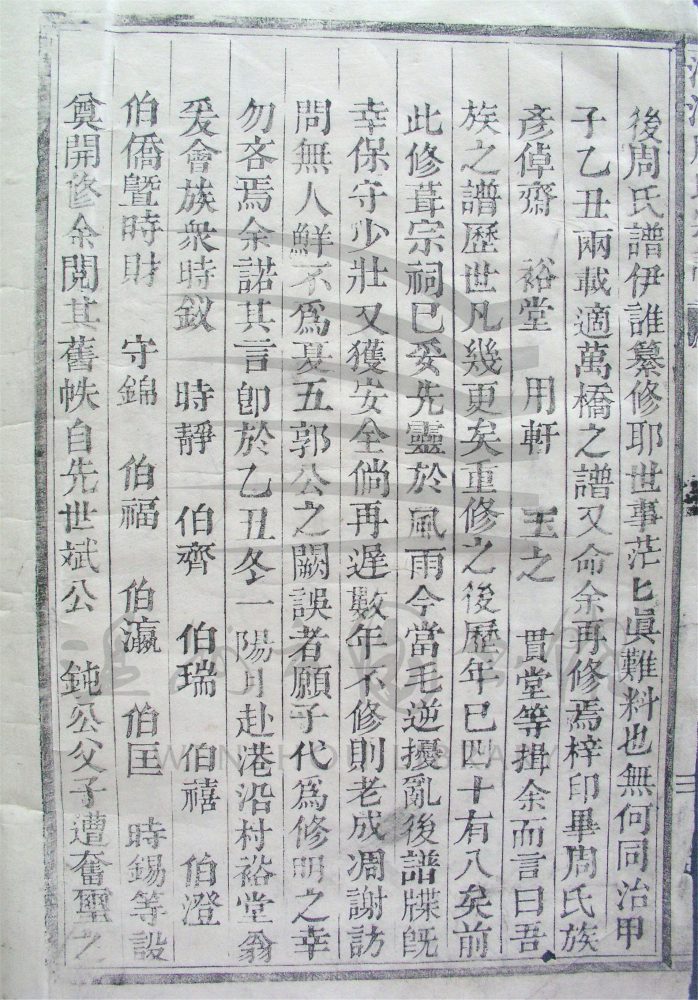 後周氏譜伊誰纂修耶世事茫匕眞難料也無何同治甲
子乙丑兩載適萬橋之譜又命余再修焉梓印畢周氏族
彥倬齋 裕堂 用軒 玉之 貫堂等揖余而言曰吾
族之譜歷世凡幾更矣重修之後歷年已四十有八矣前
此修葺宗祠已妥先靈於風雨今當毛逆擾亂後譜牒旣
幸保守少壯又獲安全倘再遲數年不修則老成凋謝訪
問無人鮮不爲夏五郭公之闕誤者願子代爲修明之幸
勿吝焉余諾其言卽於乙丑冬一陽月赴港沿村裕堂翁
爰會族衆時釵 時靜 伯齊 伯瑞 伯禧 伯澄
伯僑曁時財 守錦 伯福 伯瀛 伯匡 時錫等設
奠開修余閱其舊帙自先世斌公 鈍公父子遭奮壐之
WENZHOU LIBRARY